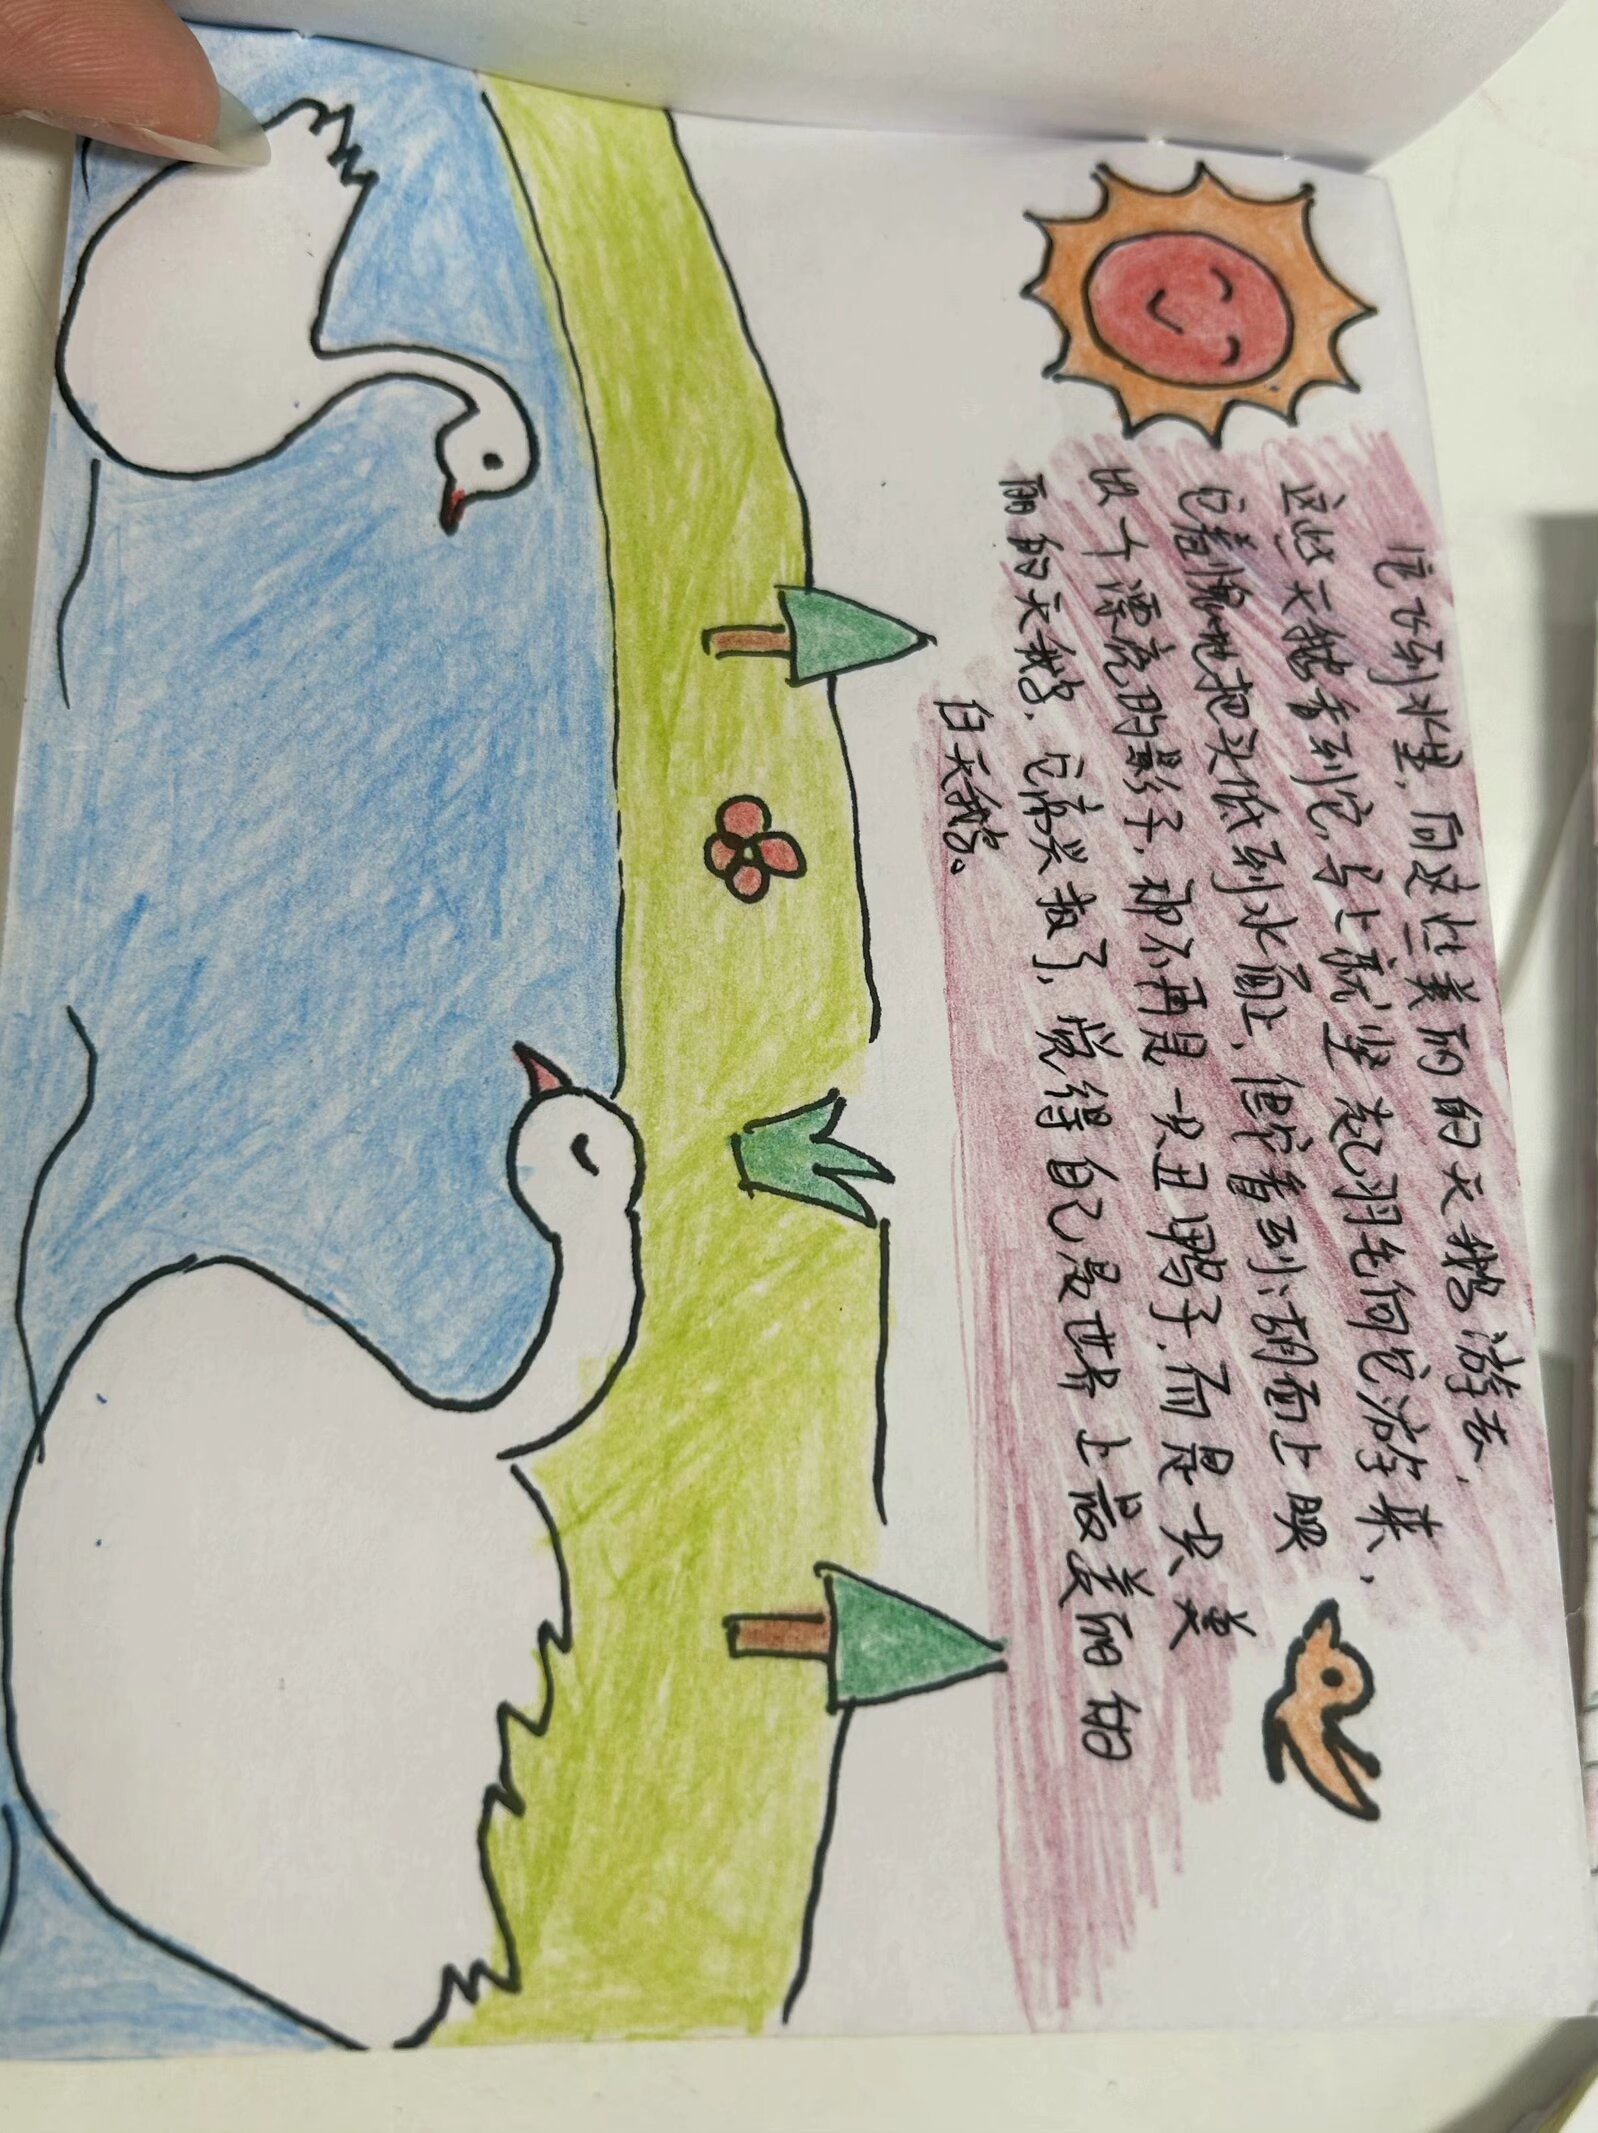 它飞到水里，向这些美丽的天鹅游去，
这些天鹅看到它，马上就竖起羽毛向它游来，
它羞愧地把头低到水面上，但它看到小湖面上照
出个漂亮的影子，却不再是一只丑鸭子，而是一只美
丽的天鹅，它高兴极了，觉得自己是世界上最美丽的
白天鹅。